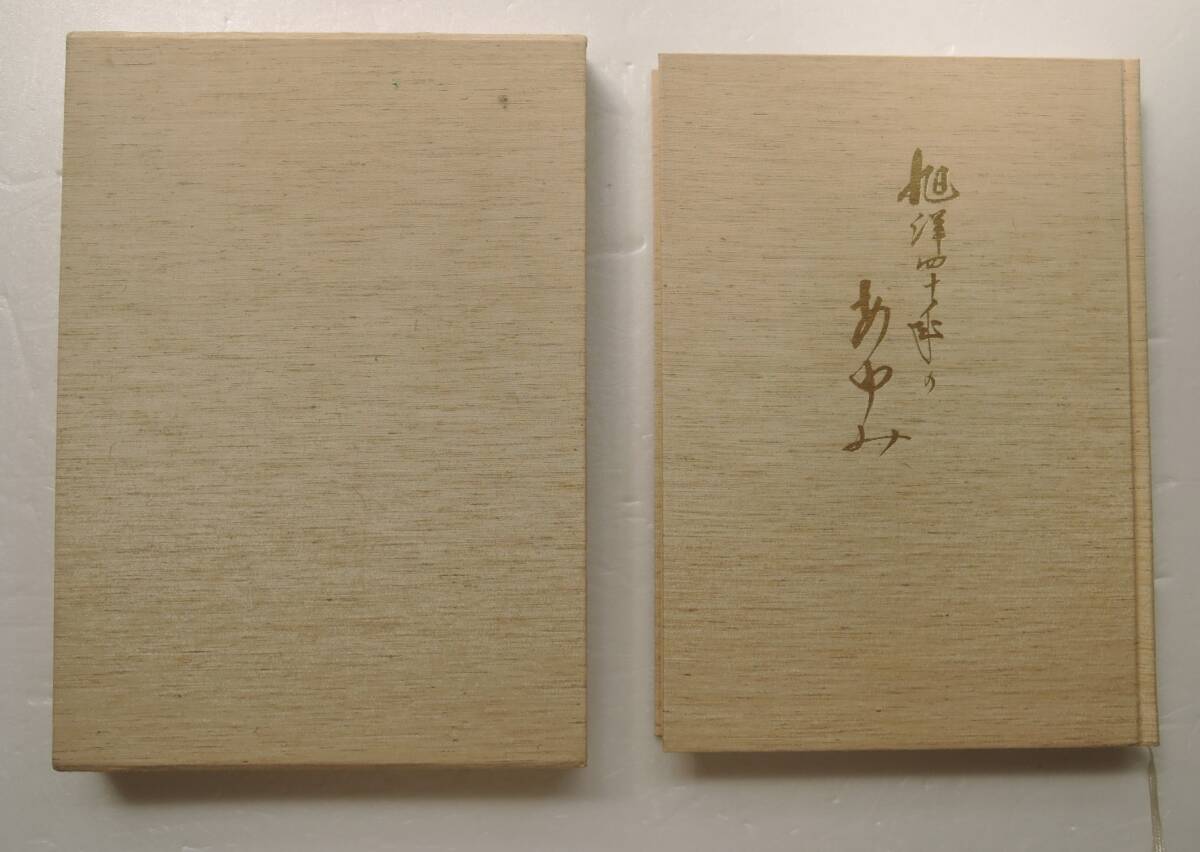 旭洋四十年の
あゆみ